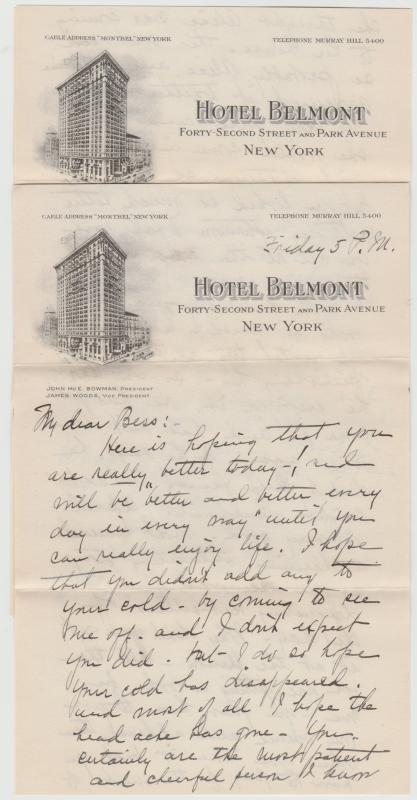 CABLE ADDRESS "MONTBEL" NEW YORK
TELEPHONE MURRAY HILL 5400
HOTEL BELMONT
FORTY-SECOND STREET AND PARK AVENUE
NEW YORK
CABLE ADDRESS "MONTBEL" NEW YORK
TELEPHONE MURRAY HILL 5400
Friday 5 P.M.
HOTEL BELMONT
FORTY-SECOND STREET AND PARK AVENUE
NEW YORK
JOHN MCE. BOWMAN, PRESIDENT
JAMES WOODS, VICE PRESIDENT
My dear Bess:-
Here is hoping that you
are really "better today-! and
will be better and better every
day in every way" until you
can really enjoy life. I hope
that you didn't add any to
your cold - by coming to see
me off. and I don't expect
you did. but - I do so hope
your cold has disappeared.
and most of all I hope the
head ache has gone - You
certainly are the most patient
and cheerful person I know